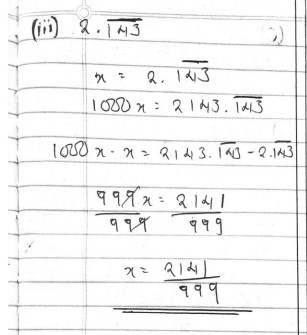 (iii) 2.1̅4̅3̅
x = 2.1̅4̅3̅
1000x = 2143.1̅4̅3̅
1000x - x = 2143.1̅4̅3̅ - 2.1̅4̅3̅
999x/999 = 2141/999
x = 2141/999